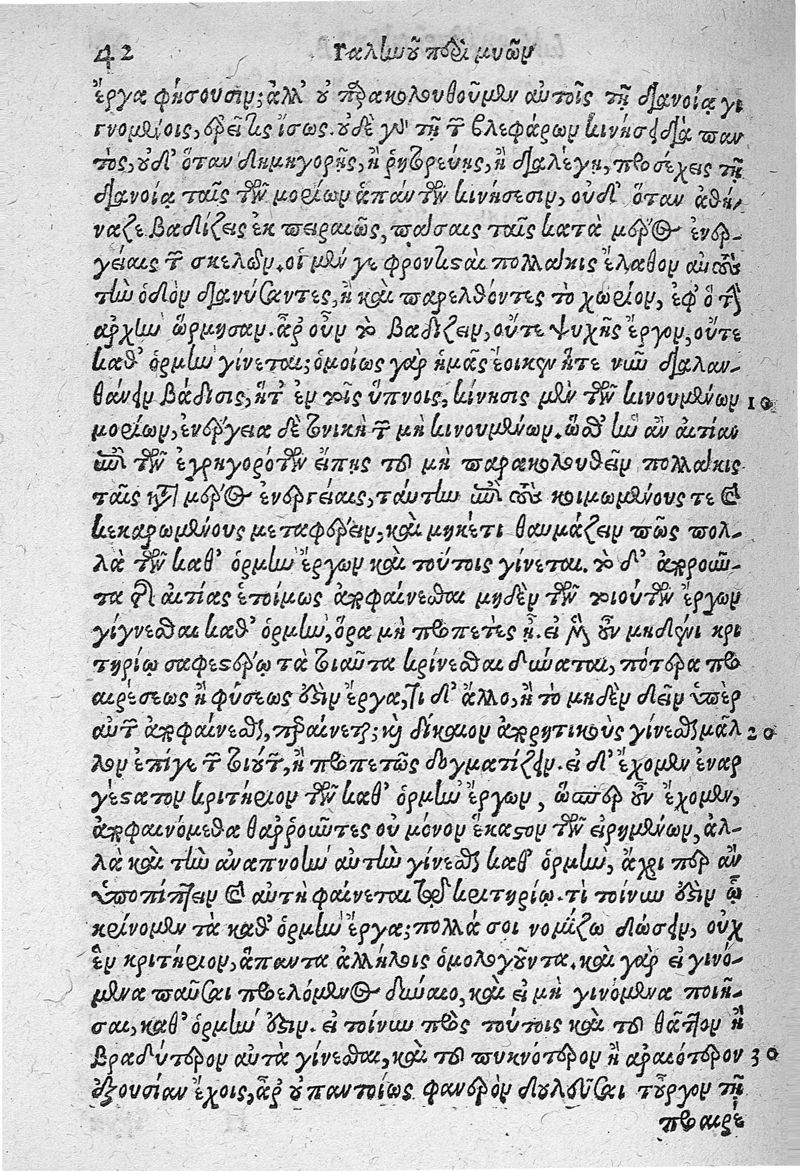 42 Γαληνοῦ περὶ μυῶν
ἔργα φήσουσιν; ἀλλ' οὐ παρακολουθοῦμεν αὐτοῖς τῇ διανοίᾳ γι
γνομένοις, ἐρεῖ τις ἴσως. οὐδὲ γὰρ τῇ τῶν βλεφάρων κινήσει διὰ παν
τὸς, οὐδ' ὅταν δημηγορῇς, ἢ ῥητορεύῃς, ἢ διαλέγῃ, προσέχεις τῇ
διανοίᾳ ταῖς τῶν μορίων ἁπάντων κινήσεσιν, οὐδ' ὅταν ἀθή-
ναζε βαδίζεις ἐκ πειραιῶς, πάσαις ταῖς κατὰ μέρος ἐνερ-
γείαις τῶν σκελῶν. οἱ μέν γε φροντισταὶ πολλάκις ἔλαθον αὑτοὺς
τὴν ὁδὸν διανύσαντες, ἢ καὶ παρελθόντες τὸ χωρίον, ἐφ' ὃ τὴν
ἀρχὴν ὥρμησαν. ἆρ' οὖν τὸ βαδίζειν, οὔτε ψυχῆς ἔργον, οὔτε
καθ' ὁρμὴν γίνεται; ὁμοίως γὰρ ἡμᾶς ἔοικεν ἥτε νῦν διαλαν-
θάνειν βάδισις, ἥτ' ἐν τοῖς ὕπνοις, κίνησις μὲν τῶν κινουμένων 10
μορίων, ἐνέργεια δὲ τονικὴ τῶν μὴ κινουμένων. ὥσθ' ἣν ἂν αἰτίαν
ἐπὶ τῶν ἐγρηγορότων εἴπῃς τοῦ μὴ παρακολουθεῖν πολλάκις
ταῖς κατὰ μέρος ἐνεργείαις, ταύτην ἐπὶ τοὺς κοιμωμένους τε καὶ
κεκαρωμένους μεταφέρειν, καὶ μηκέτι θαυμάζειν πῶς πολ-
λὰ τῶν καθ' ὁρμὴν ἔργων καὶ τούτοις γίνεται. τὸ δ' ἀπροῦν-
τα τῆς αἰτίας ἑτοίμως ἀποφαίνεσθαι μηδὲν τῶν τοιούτων ἔργων
γίγνεσθαι καθ' ὁρμὴν, ὅρα μὴ προπετὲς ᾖ. εἰ μὲν οὖν μηδενὶ κρι
τηρίῳ σαφεστέρῳ τὰ τοιαῦτα κρίνεσθαι δύναται, πότερα προ
αιρέσεως ἢ φύσεώς ἐστιν ἔργα, τί δ' ἄλλο, ἢ τὸ μηδὲν δεῖν ὑπὲρ
αὐτῶν ἀποφαίνεσθαι, περαίνεται; καὶ δίκαιον ἀπορητικοὺς γίνεσθαι μᾶλ 20
λον ἐπί γε τῶν τοιούτων, ἢ προπετῶς δογματίζειν. εἰ δ' ἔχομεν ἐναρ
γέστατον κριτήριον τῶν καθ' ὁρμὴν ἔργων, ὥσπερ οὖν ἔχομεν,
ἀποφαινόμεθα θαῤῥοῦντες οὐ μόνον ἕκαστον τῶν εἰρημένων, ἀλ-
λὰ καὶ τὴν ἀναπνοὴν αὐτὴν γίνεσθαι καθ' ὁρμὴν, ἄχρι περ ἂν
ὑποπίπτειν καὶ αὐτὴ φαίνεται τῷδε κριτηρίῳ. τί τοίνυν ἐστὶν ᾧ
κρίνομεν τὰ καθ' ὁρμὴν ἔργα; πολλά σοι νομίζω δώσειν, οὐχ
ἓν κριτήριον, ἅπαντα ἀλλήλοις ὁμολογοῦντα. καὶ γὰρ εἰ γινό-
μενα παῦσαι προελόμενος δύναιο, καὶ εἰ μὴ γινόμενα ποιῆ-
σαι, καθ' ὁρμήν ἐστιν. εἰ τοίνυν πρὸς τούτοις καὶ τοῦ θᾶττον ἢ
βραδύτερον αὐτὰ γίνεσθαι, καὶ τοῦ πυκνότερον ἢ ἀραιότερον 30
ἐξουσίαν ἔχοις, ἆρ' οὐ παντοίως φανερὸν δουλεῦσαι τοὖργον τῇ
προαιρέ